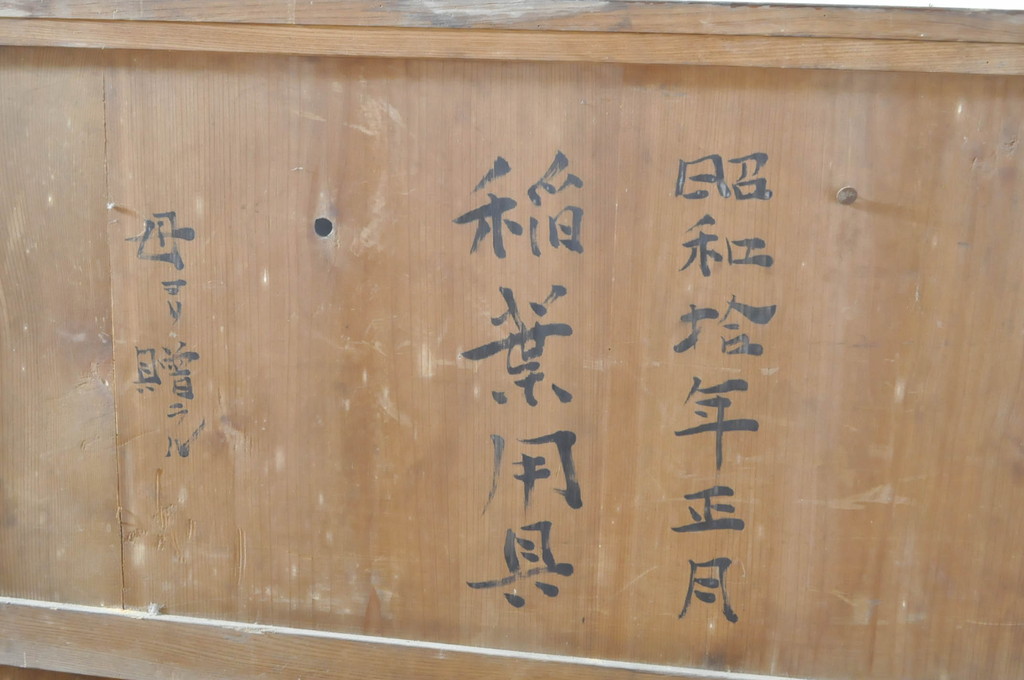 昭和拾年正月
稲葉用具
母ヨリ贈ラル